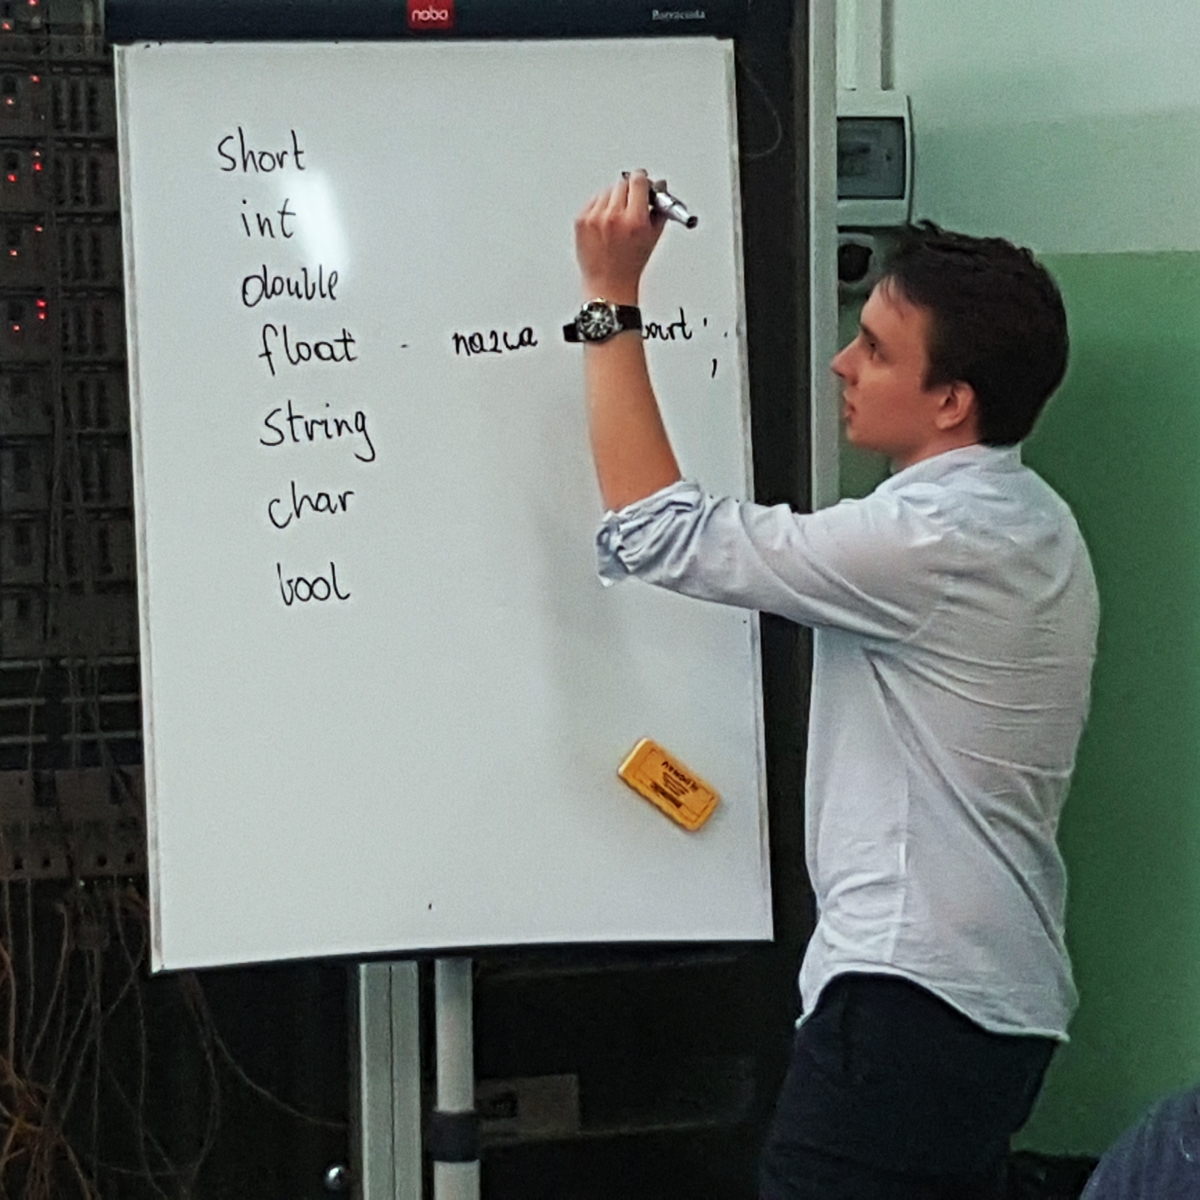 nobo
Barracuda
Short
int
double
float - nazwa
String
char
bool